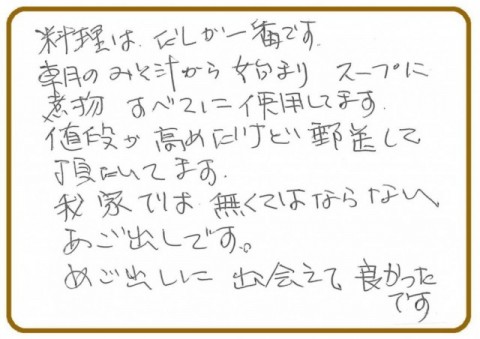 料理は、だしが一番です.
朝のみそ汁から始まり スープに
煮物 すべてに使用してます.
値段が高めだけど郵送して
頂いてます.
我家では無くてはならない、
あご出しです。
あご出しに出会えて良かった
です